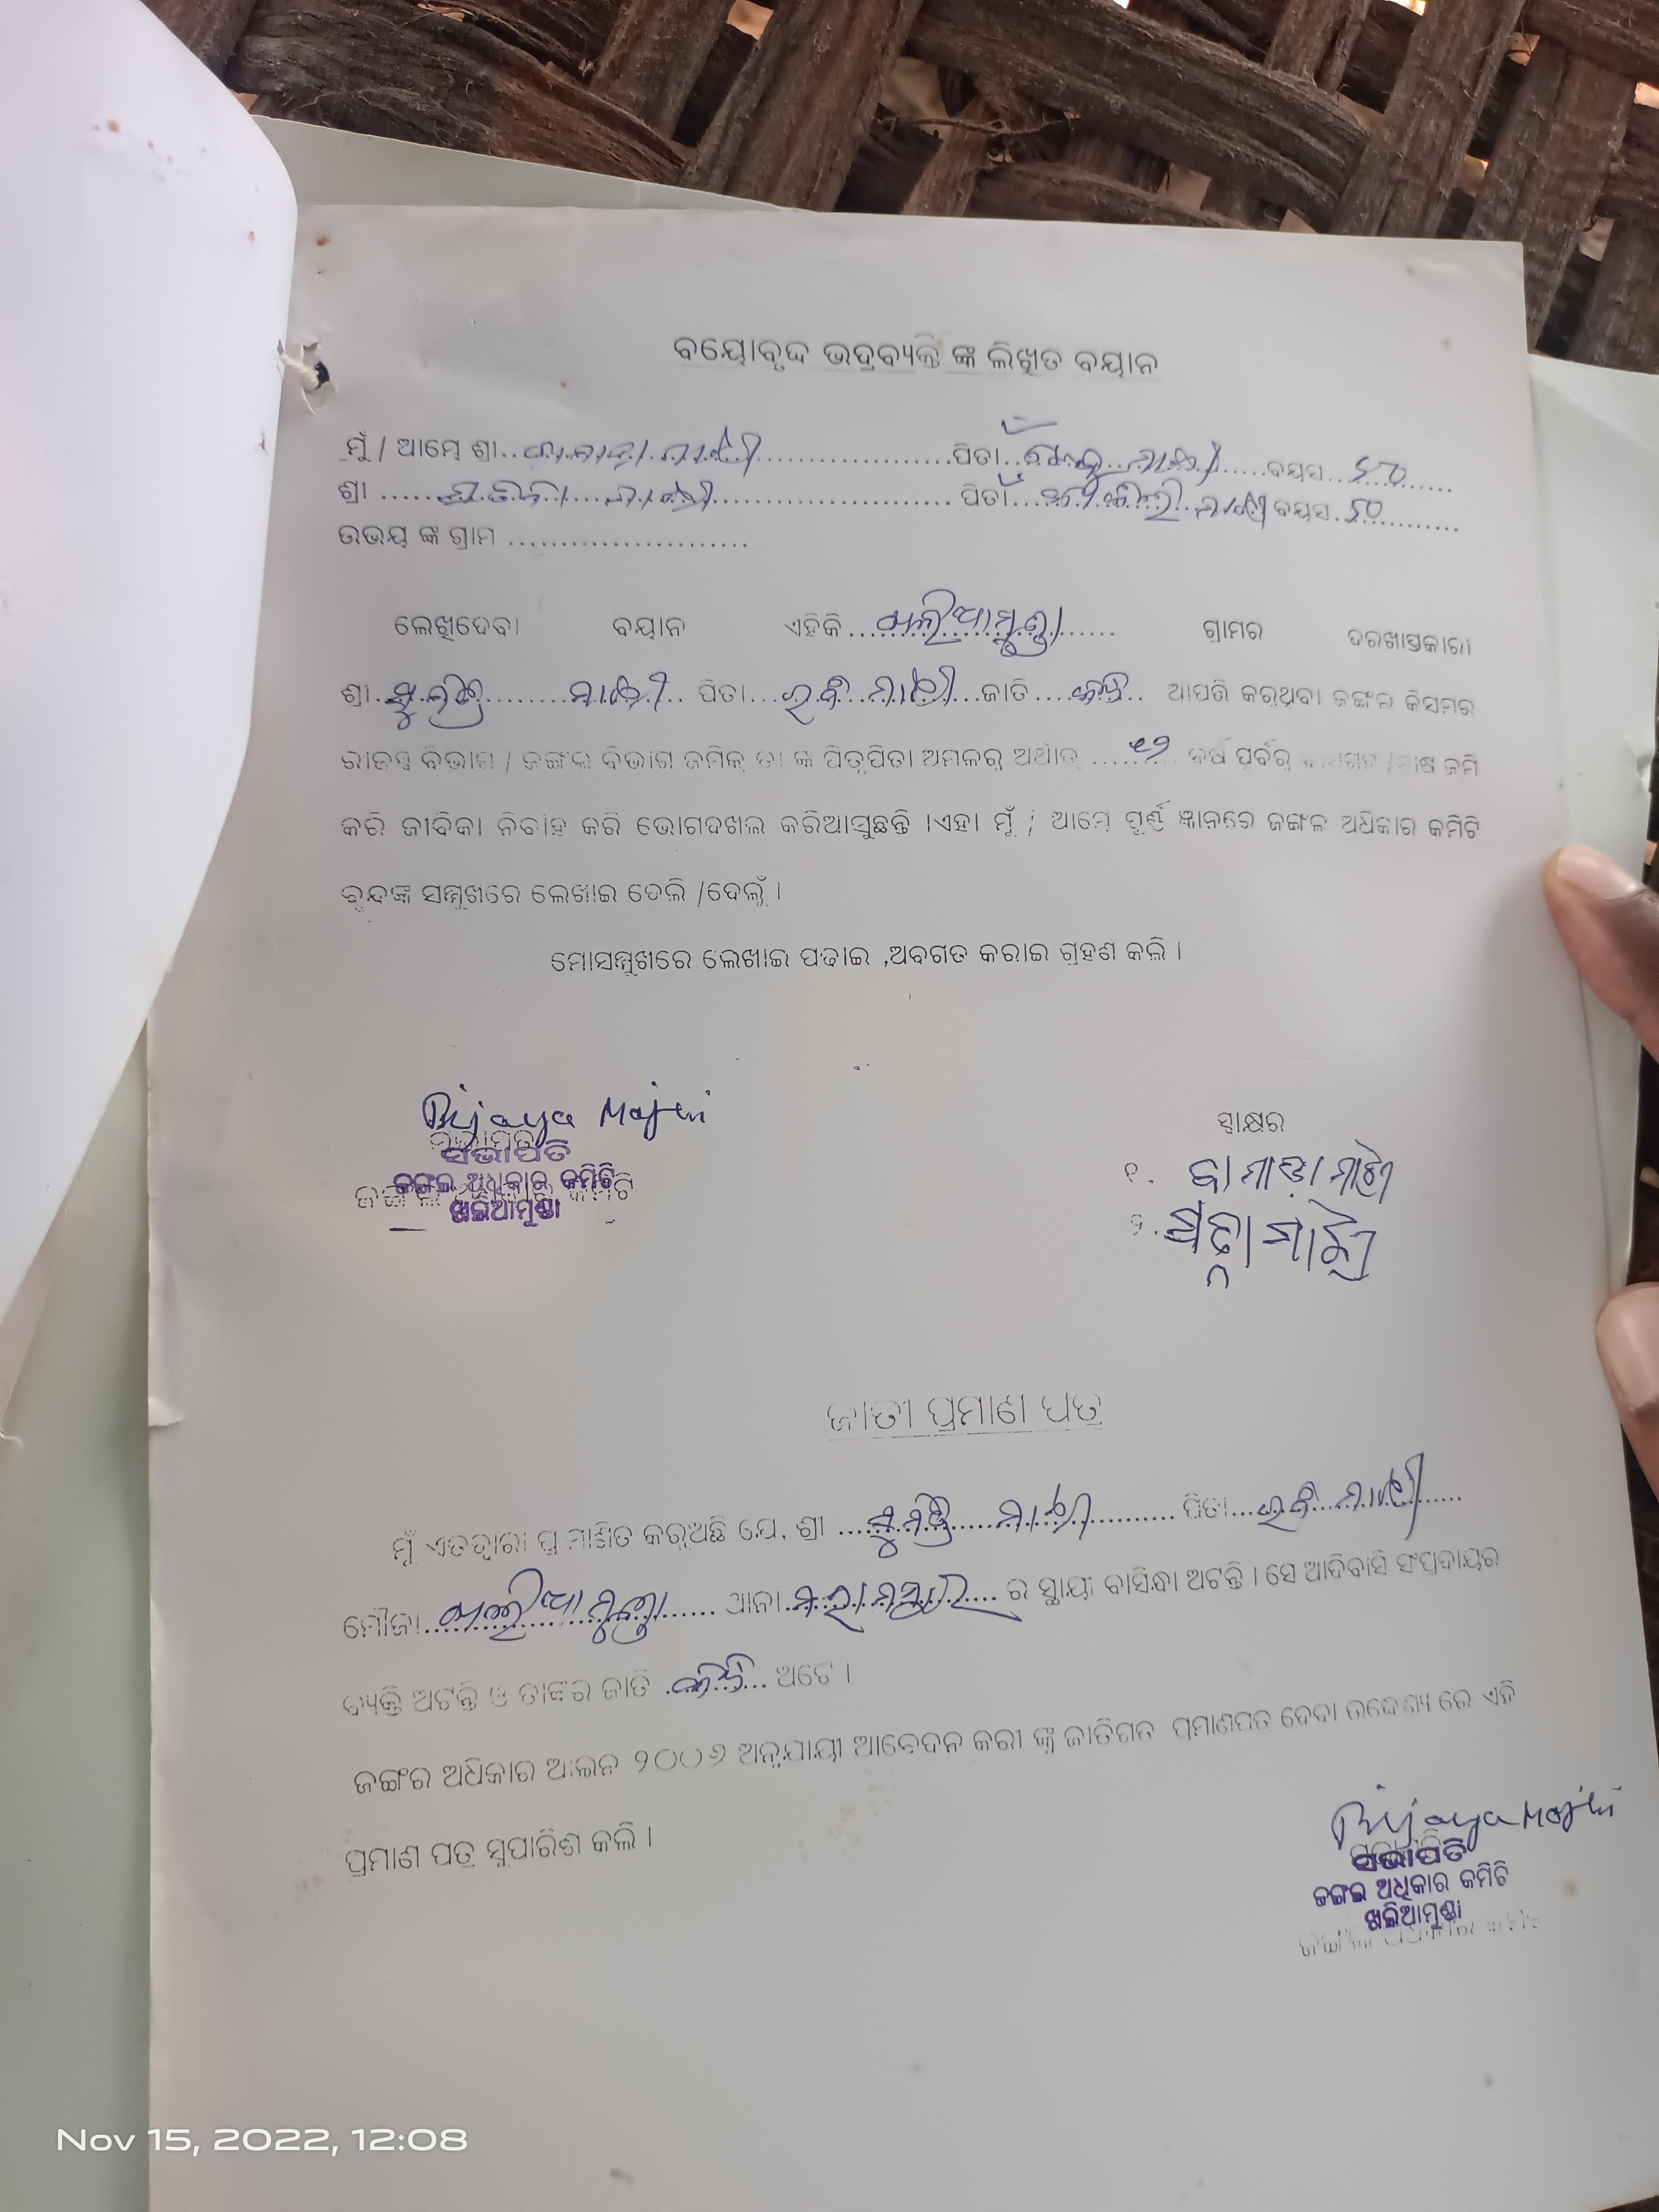 ବୟୋବୃଦ୍ଧ ଭଦ୍ରବ୍ୟକ୍ତି ଙ୍କ ଲିଖିତ ବୟାନ
ମୁଁ / ଆମ୍ଭେ ଶ୍ରୀ.. ମାଝୀ ..........ପିତା.. ମାଝୀ ......ବୟସ...
ଶ୍ରୀ ...... ମାଝୀ .......... ପିତା... ମାଝୀ ବୟସ. 50 ........
ଉଭୟ ଙ୍କ ଗ୍ରାମ ......................
ଲେଖିଦେବା ବୟାନ ଏହିକି ... ଖଲିଆମୁଣ୍ଡା ...... ଗ୍ରାମର ଦରଖାସ୍ତକାରୀ
ଶ୍ରୀ.. ମାଝୀ .. ପିତା... ମାଝୀ ...ଜାତି.... .. ଆପତ୍ତି କରୁଥିବା ଜଙ୍ଗଲ କିସମର
ରାଜସ୍ବ ବିଭାଗ / ଜଙ୍ଗଲ ବିଭାଗ ଜମିକୁ ତା ଙ୍କ ପିତୃପିତା ଅମଳରୁ ଅର୍ଥାତ୍ ...... ବର୍ଷ ପୂର୍ବରୁ ଜମି
କରି ଜୀବିକା ନିର୍ବାହ କରି ଭୋଗଦଖଲ କରିଆସୁଛନ୍ତି ।ଏହା ମୁଁ / ଆମ୍ଭେ ପୂର୍ଣ୍ଣ ଜ୍ଞାନରେ ଜଙ୍ଗଳ ଅଧିକାର କମିଟି
ବୃନ୍ଦଙ୍କ ସମ୍ମୁଖରେ ଲେଖାଇ ଦେଲି /ଦେଲୁଁ ।
ମୋସମ୍ମୁଖରେ ଲେଖାଇ ପଢାଇ ,ଅବଗତ କରାଇ ଗ୍ରହଣ କଲି ।
Bijaya Majhi
ସ୍ୱାକ୍ଷର
ସଭାପତି
ଜଙ୍ଗଲ ଅଧିକାର କମିଟି
ଖଲିଆମୁଣ୍ଡା
୧. ମାଝୀ
୨. ମାଝି
ଜାତୀ ପ୍ରମାଣ ପତ୍ର
ମୁଁ ଏତଦ୍ଵାରା ପ୍ରମାଣିତ କରୁଅଛି ଯେ, ଶ୍ରୀ ...... ମାଝୀ ......... ପିତା... ମାଝୀ ......
ମୌଜା.. ଖଲିଆମୁଣ୍ଡା ...... ଥାନା.. .... ର ସ୍ଥାୟୀ ବାସିନ୍ଧା ଅଟନ୍ତି । ସେ ଆଦିବାସି ସଂପ୍ରଦାୟର
ବ୍ୟକ୍ତି ଅଟନ୍ତି ଓ ତାଙ୍କର ଜାତି . ... ଅଟେ ।
ଜଙ୍ଗର ଅଧିକାର ଆଇନ ୨୦୦୬ ଅନୁଯାୟୀ ଆବେଦନ କରୀ ଙ୍କୁ ଜାତିଗତ ପ୍ରମାଣପତ୍ର ଦେବା ଉଦ୍ଦେଶ୍ୟ ରେ ଏହି
ପ୍ରମାଣ ପତ୍ର ସୁପାରିଶ କଲି ।
Bijaya Majhi
ସଭାପତି
ଜଙ୍ଗଲ ଅଧିକାର କମିଟି
ଖଲିଆମୁଣ୍ଡା
Nov 15, 2022, 12:08